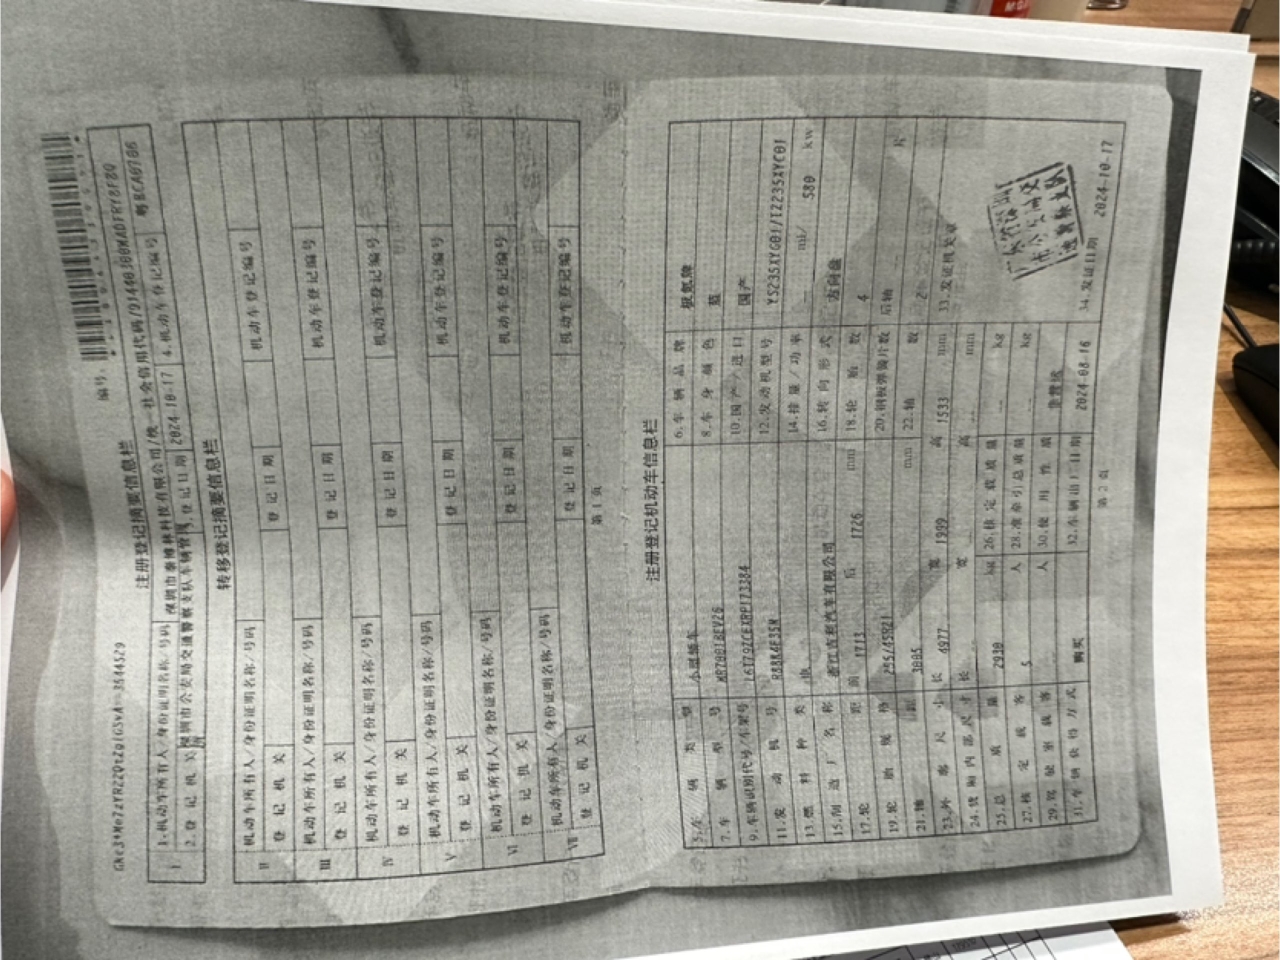 编号:
注册登记摘要信息栏
I 1.机动车所有人/身份证明名称/号码 深圳市泰博林科技有限公司/统一社会信用代码/
2.登记机关 深圳市公安局交通警察支队车辆管理所 3.登记日期 2024-10-17 4.机动车登记编号 粤BCA0706
转移登记摘要信息栏
II 机动车所有人/身份证明名称/号码
登记机关 登记日期 机动车登记编号
III 机动车所有人/身份证明名称/号码
登记机关 登记日期 机动车登记编号
IV 机动车所有人/身份证明名称/号码
登记机关 登记日期 机动车登记编号
V 机动车所有人/身份证明名称/号码
登记机关 登记日期 机动车登记编号
VI 机动车所有人/身份证明名称/号码
登记机关 登记日期 机动车登记编号
VII 机动车所有人/身份证明名称/号码
登记机关 登记日期 机动车登记编号
第1页
注册登记机动车信息栏
5.车辆类型 小型轿车 6.车辆品牌 极氪牌
7.车辆型号 8.车身颜色 蓝
9.车辆识别代号/车架号 10.国产/进口 国产
11.发动机号 12.发动机型号 YS235XYG01/TZ235XYC01
13.燃料种类 电 14.排量/功率 -- ml/ 580 kw
15.制造厂名称 浙江吉利汽车有限公司 16.转向形式 方向盘
17.轮距 前 1713 后 1726 mm 18.轮胎数 4
19.轮胎规格 255/45R21 20.钢板弹簧片数 后轴 片
21.轴距 3005 mm 22.轴数 2
23.外廓尺寸 长 4977 宽 1999 高 1533 mm 33.发证机关章
24.货厢内部尺寸 长 宽 高 mm
25.总质量 2930 kg 26.核定载质量 -- kg
27.核定载客 5 人 28.准牵引总质量 -- kg
29.驾驶室载客 人 30.使用性质 非营运
31.车辆获得方式 购买 32.车辆出厂日期 2024-08-16 34.发证日期 2024-10-17
第2页